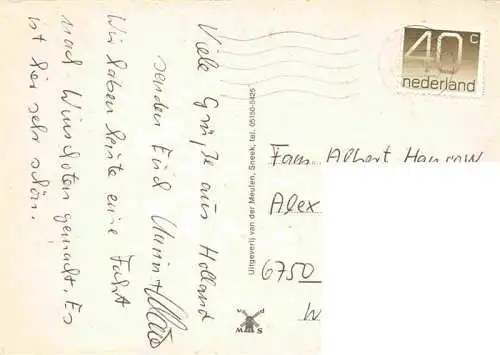 Viele Grüße aus Holland
senden Euch
Wir haben heute eine Fahrt
nach gemacht. Es
ist hier sehr schön.
40 c
nederland
Uitgeverij van der Meulen, Sneek, tel. 05150-5425
Fam. Albert
Alex
6750
W